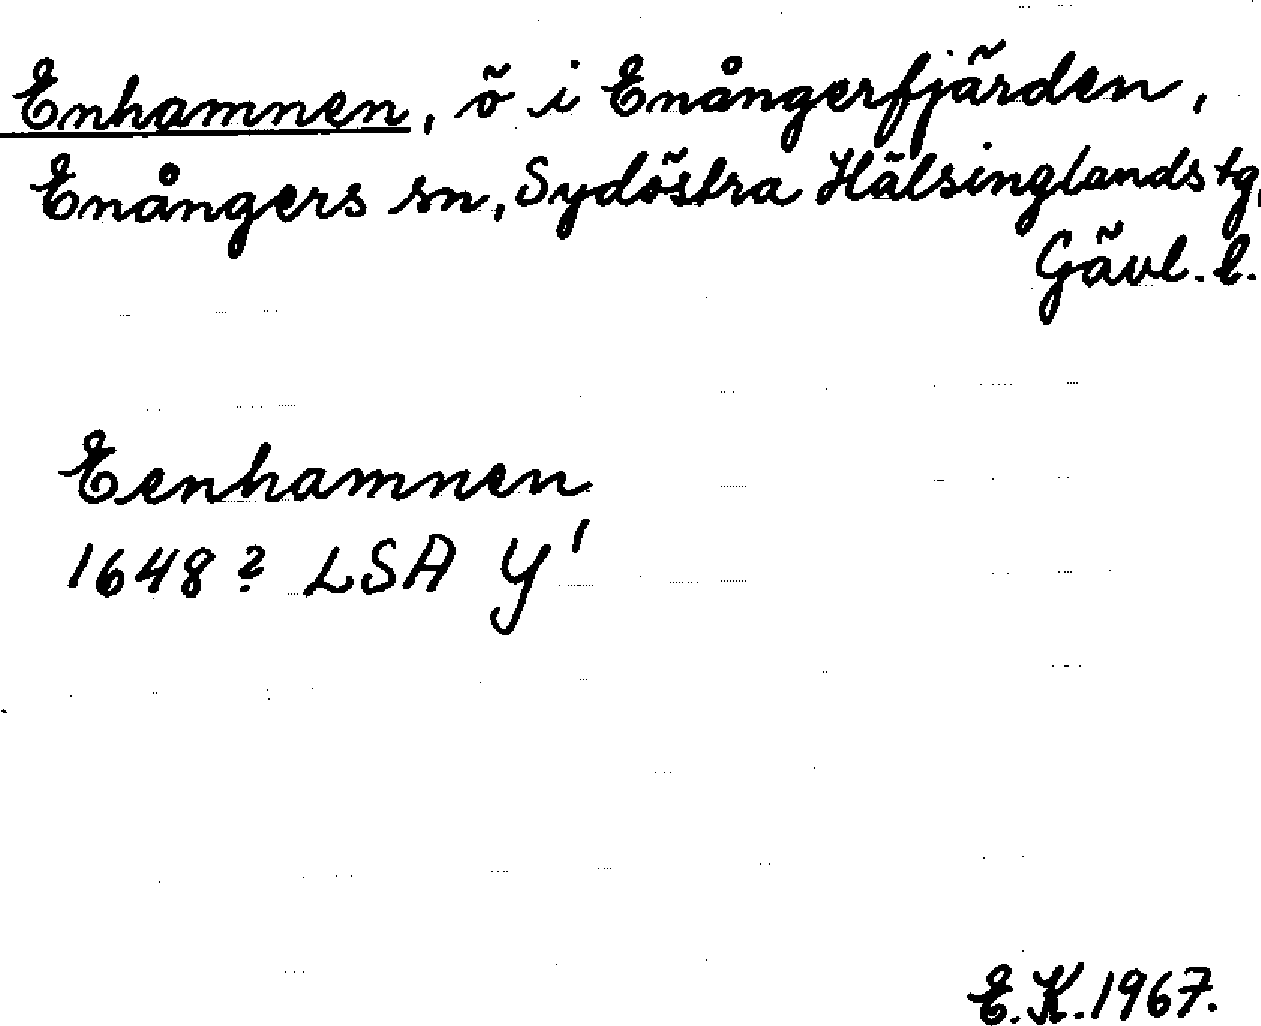 Enhamnen, ö i Enångerfjärden,
Enångers sn, Sydöstra Hälsinglands tg,
Gävl. l.
Eenhamnen
1648? LSA Y'
E.K.1967.